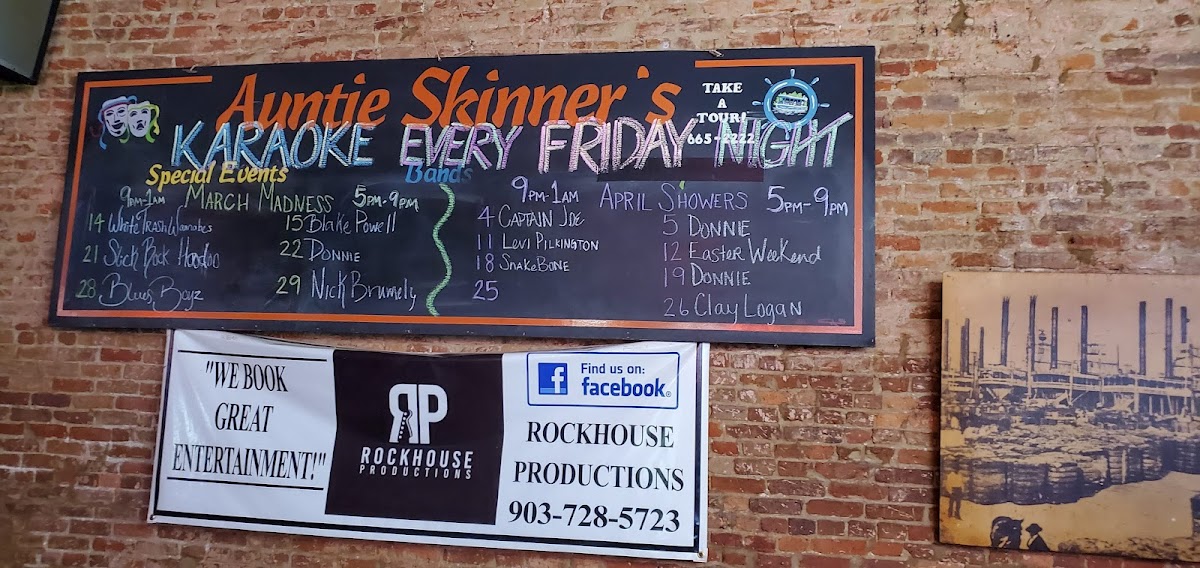 Auntie Skinner's
TAKE
A
TOUR!
665-2222
KARAOKE EVERY FRIDAY NIGHT
Special Events
Bands
9PM-1AM MARCH MADNESS 5PM-9PM
14 White Trash Wannabes
15 Blake Powell
21 Slick Rock Hoodoo
22 DONNIE
28 Blues Boyz
29 Nick Brumely
9PM-1AM APRIL SHOWERS 5PM-9PM
4 CAPTAIN JOE
5 DONNIE
11 LEVI PILKINGTON
12 Easter Weekend
18 SNAKEBONE
19 DONNIE
25
26 Clay Logan
"WE BOOK
GREAT
ENTERTAINMENT!"
RP
ROCKHOUSE
PRODUCTIONS
f Find us on:
facebook®
ROCKHOUSE
PRODUCTIONS
903-728-5723